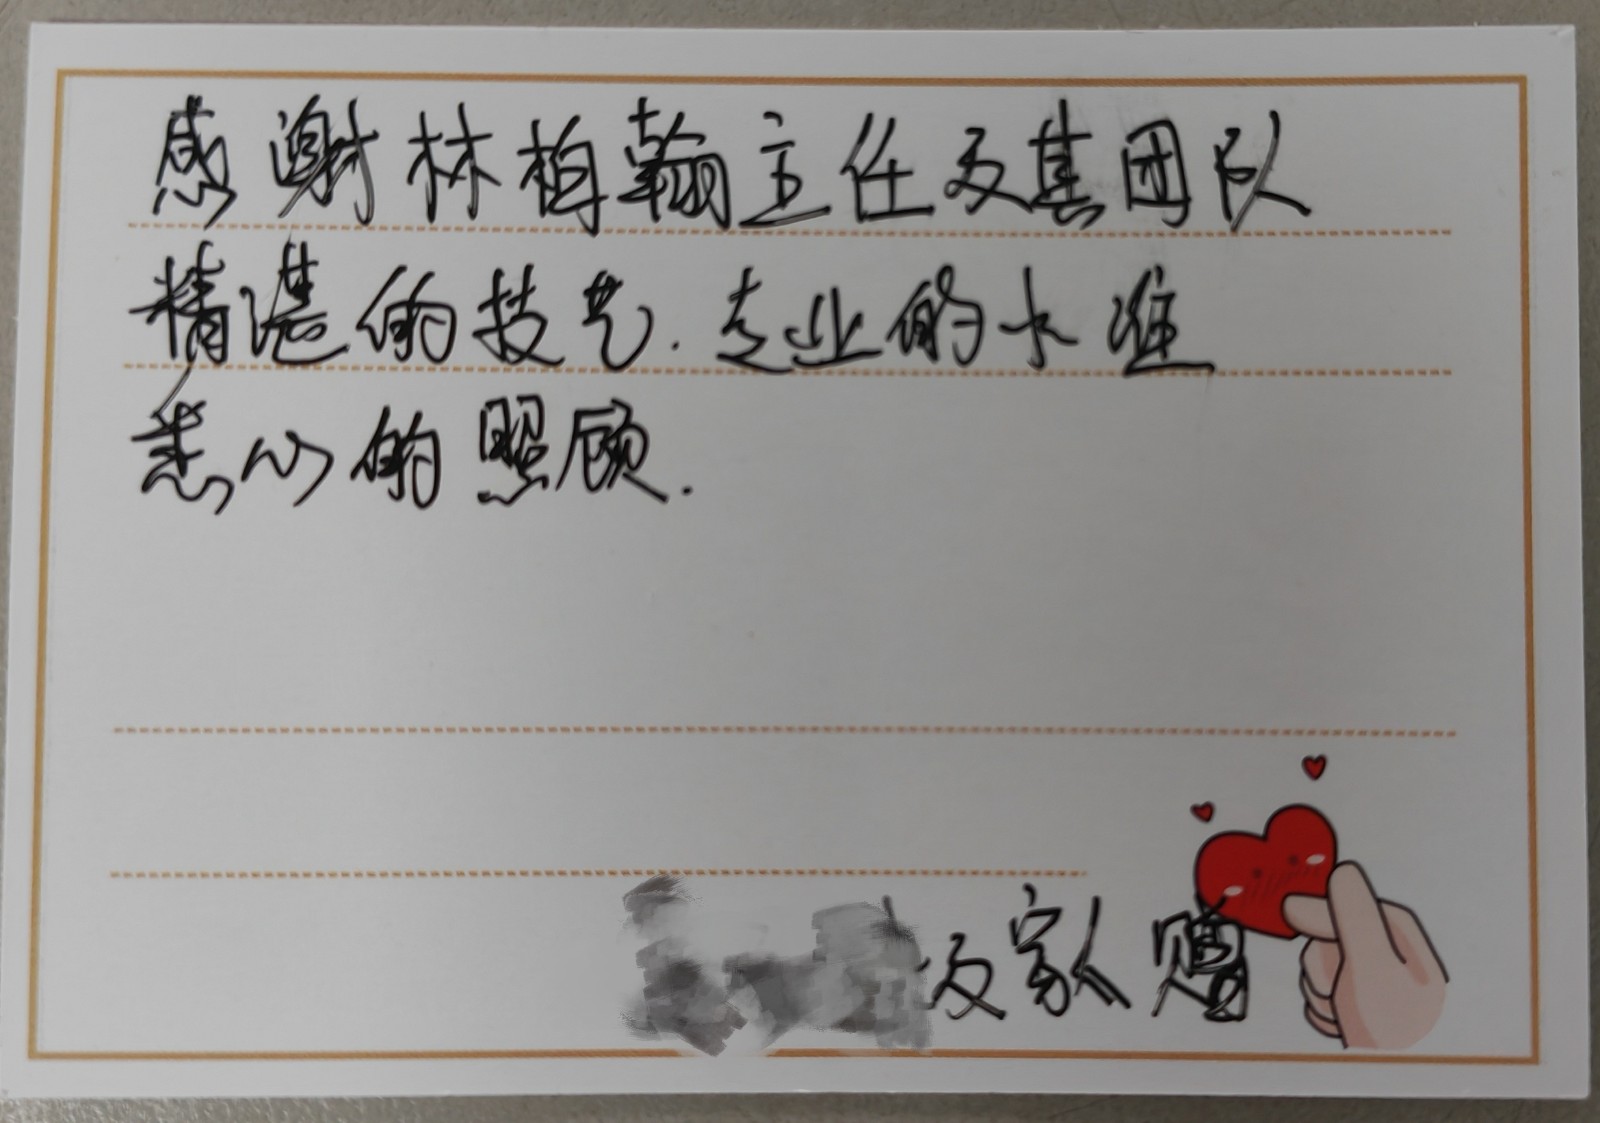 感谢林柏翰主任及其团队
精湛的技艺.专业的水准
悉心的照顾.
及家人 赠